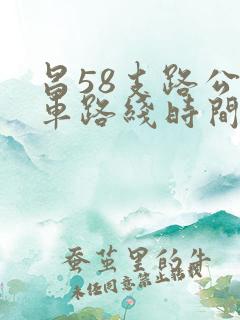 昌58支路公
車路綫時間
蚕茧里的牛
未经同意禁止转载